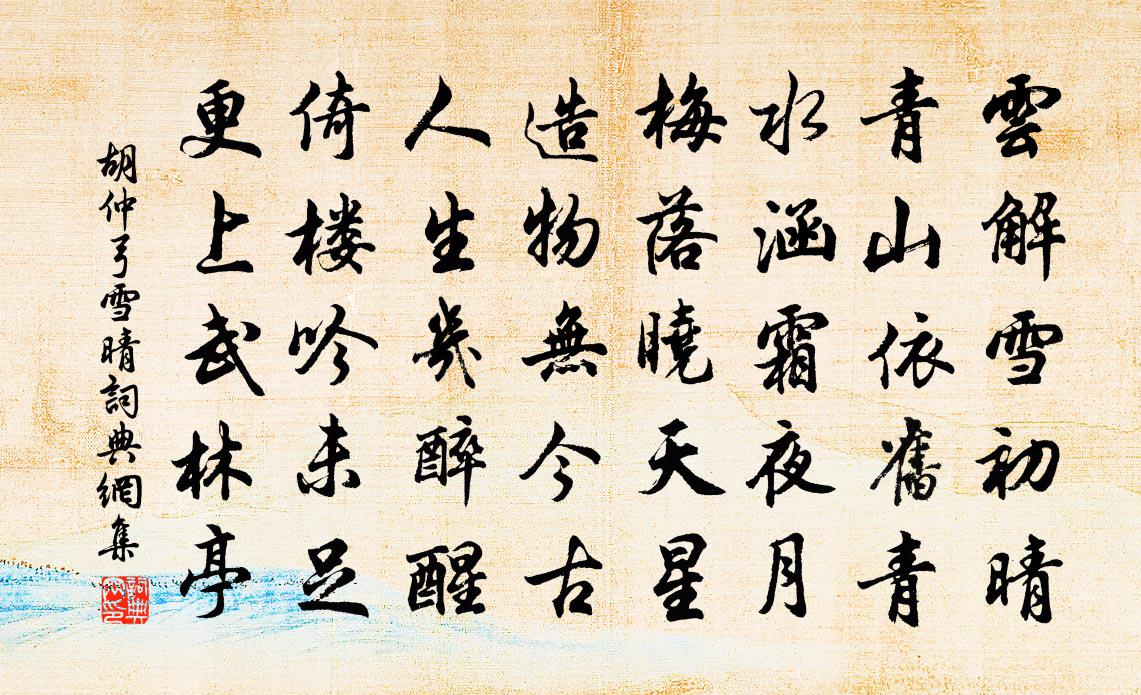 雲解雪初晴
青山依舊青
水涵霜夜月
梅落曉天星
造物無今古
人生幾醉醒
倚楼吟未足
更上武林亭
胡仲弓雪晴詞典網集